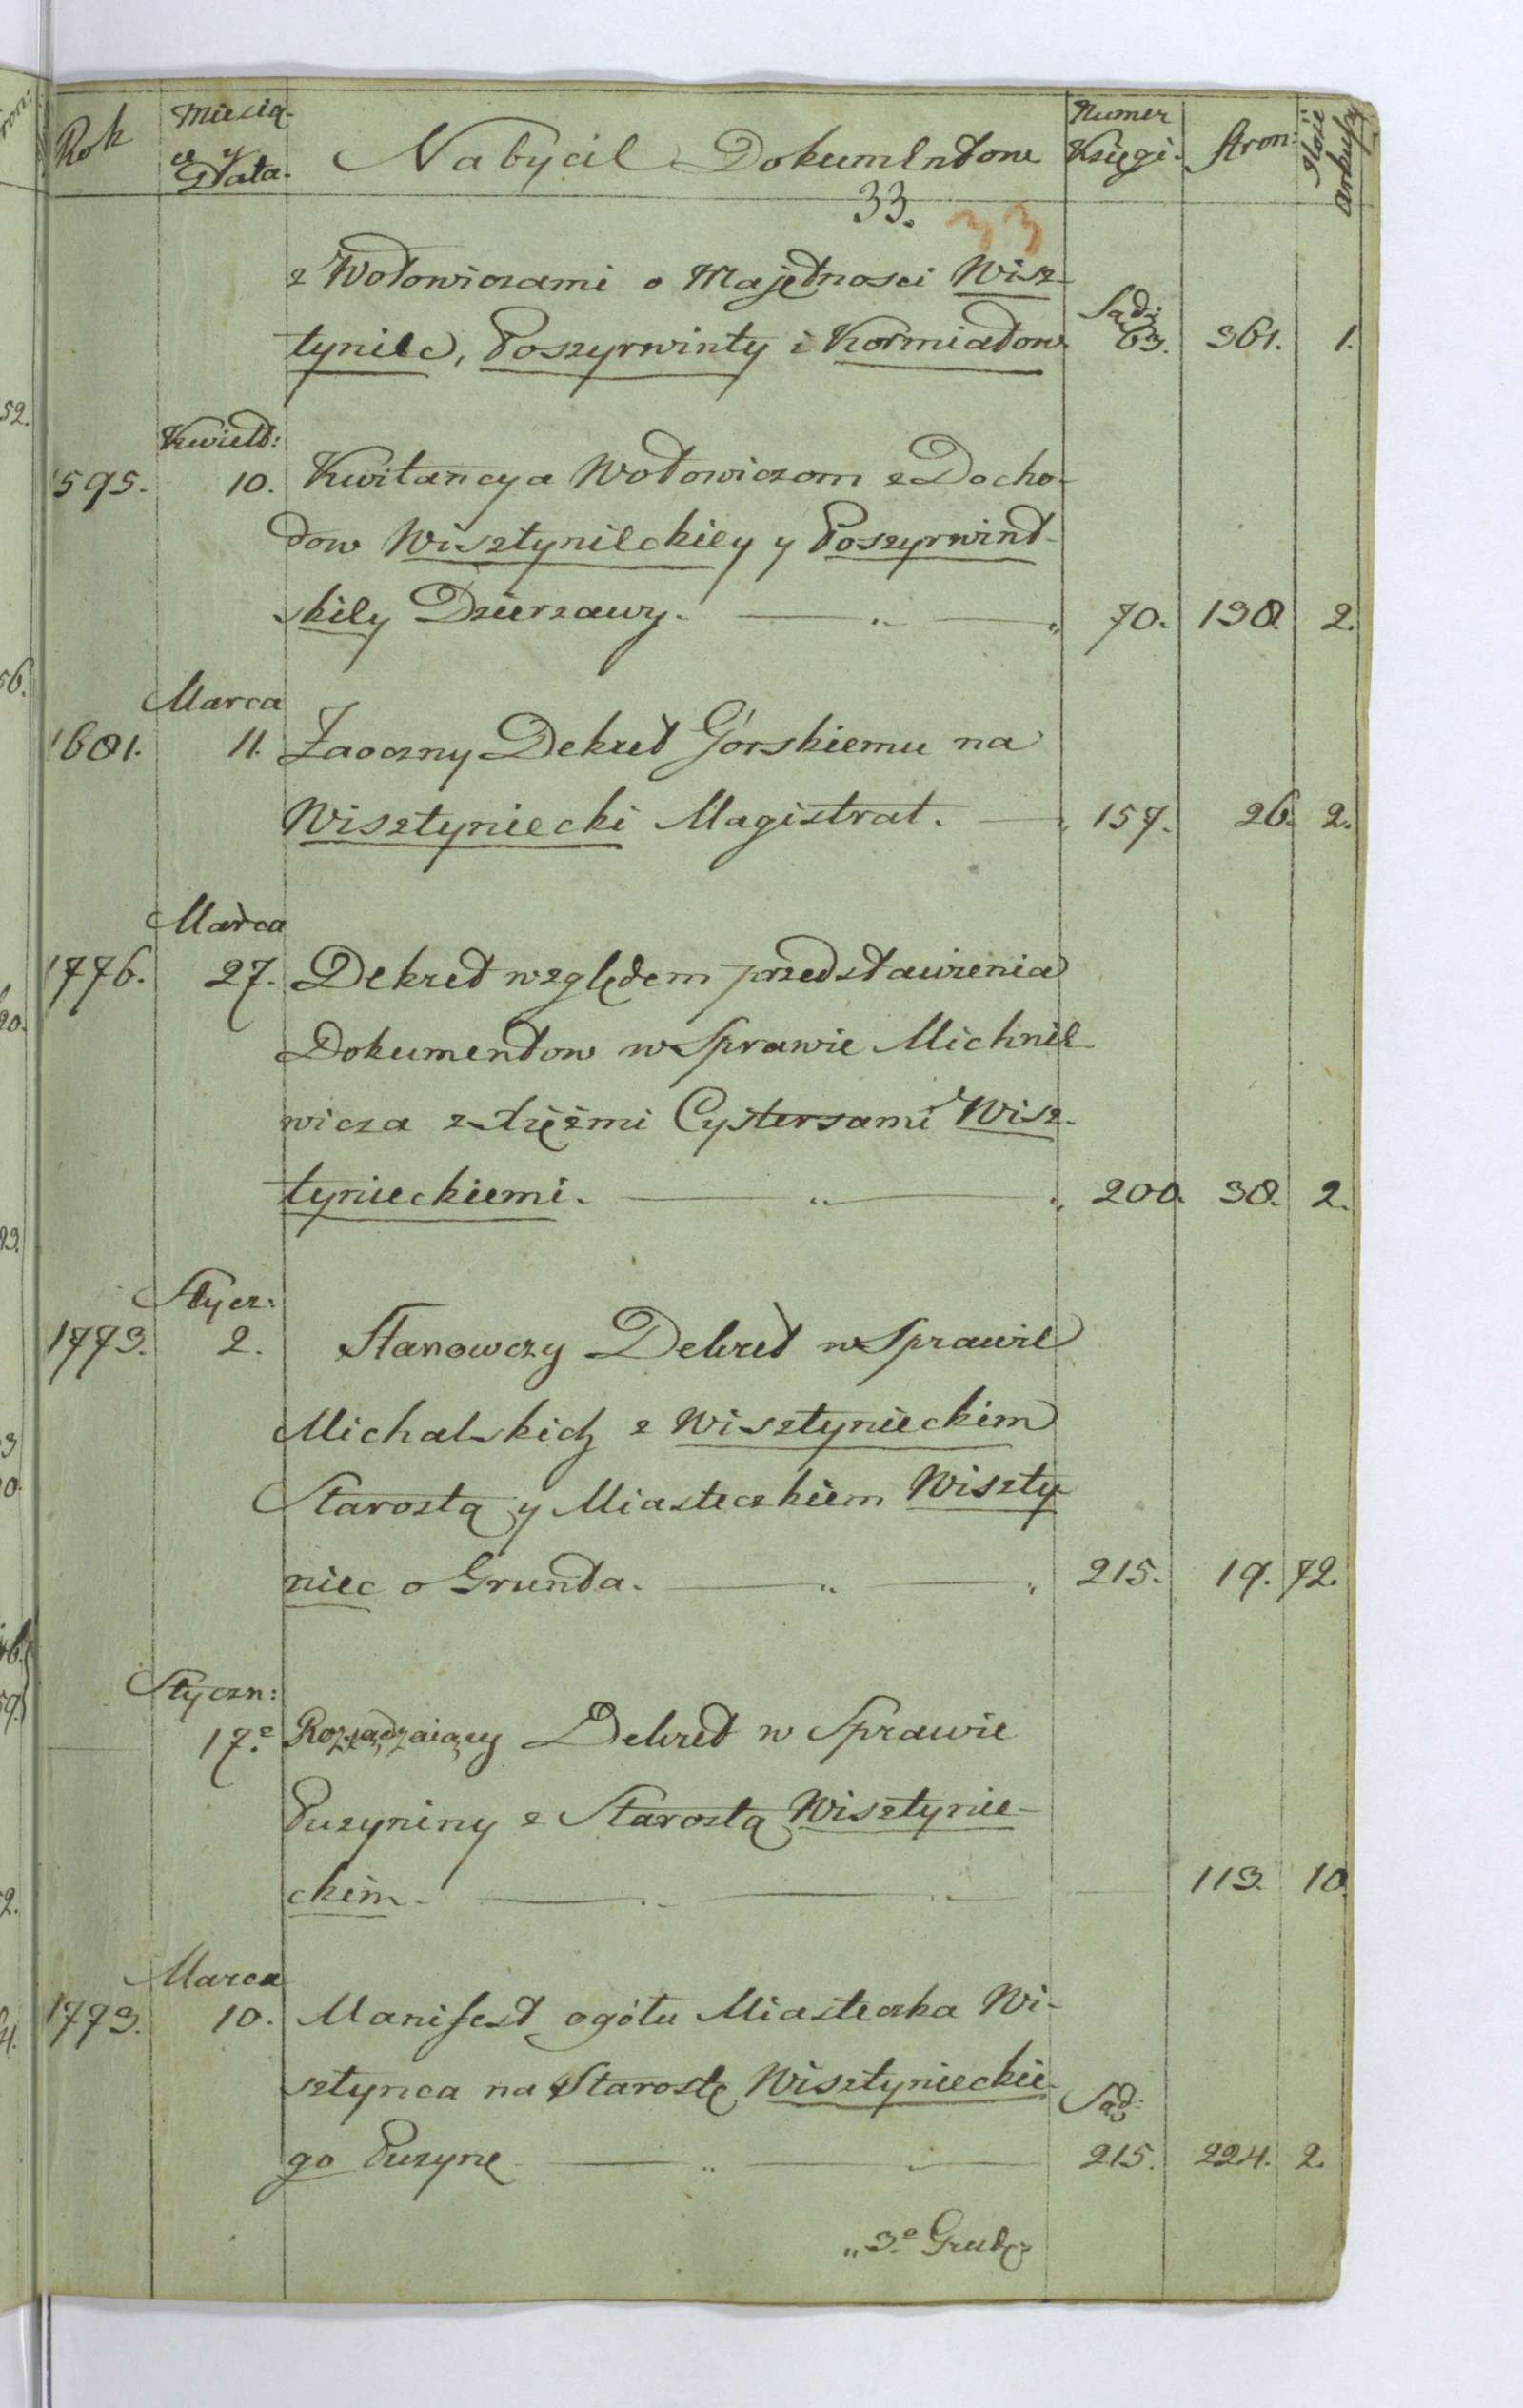 Rok Miesiąc y Data. Nabycie Dokumentow Numer Księgi. Stron: Ilość Arkuszy
33. 33
z Wołowiczami o Majętnosci Wisz- Sądz:
tyniec, Poszyrwinty i Kormiałow. 63. 361. 1.
Kwiet:
1595. 10. Kwitancya Wołowiczom z Docho-
dow Wisztynieckiey y Poszyrwint-
skiey Dzierzawy. 70. 198. 2.
Marca
1681. 11. Zaoczny Dekret Górskiemu na
Wisztyniecki Magistrat. 157. 26. 2.
Marca
1776. 27. Dekret względem przedstawienia
Dokumentow w Sprawie Michnie-
wicza z Xiężmi Cystersami Wisz-
tynieckiemi. 200. 38. 2.
Stycz:
1773. 2. Stanowczy Dekret w Sprawie
Michalskich z Wisztynieckim
Starostą y Miasteczkiem Wiszty-
niec o Grunta. 215. 19. 72.
Styczn:
17.e Rozsądzaiący Dekret w Sprawie
Puzyniny z Starostą Wisztynie-
ckim. 113. 10.
Marca
1773. 10. Manifest ogółu Miasteczka Wi-
sztynca na Starostę Wisztynieckie- Sądz:
go Puzynę 215. 224. 2.
„3.o Grudz: